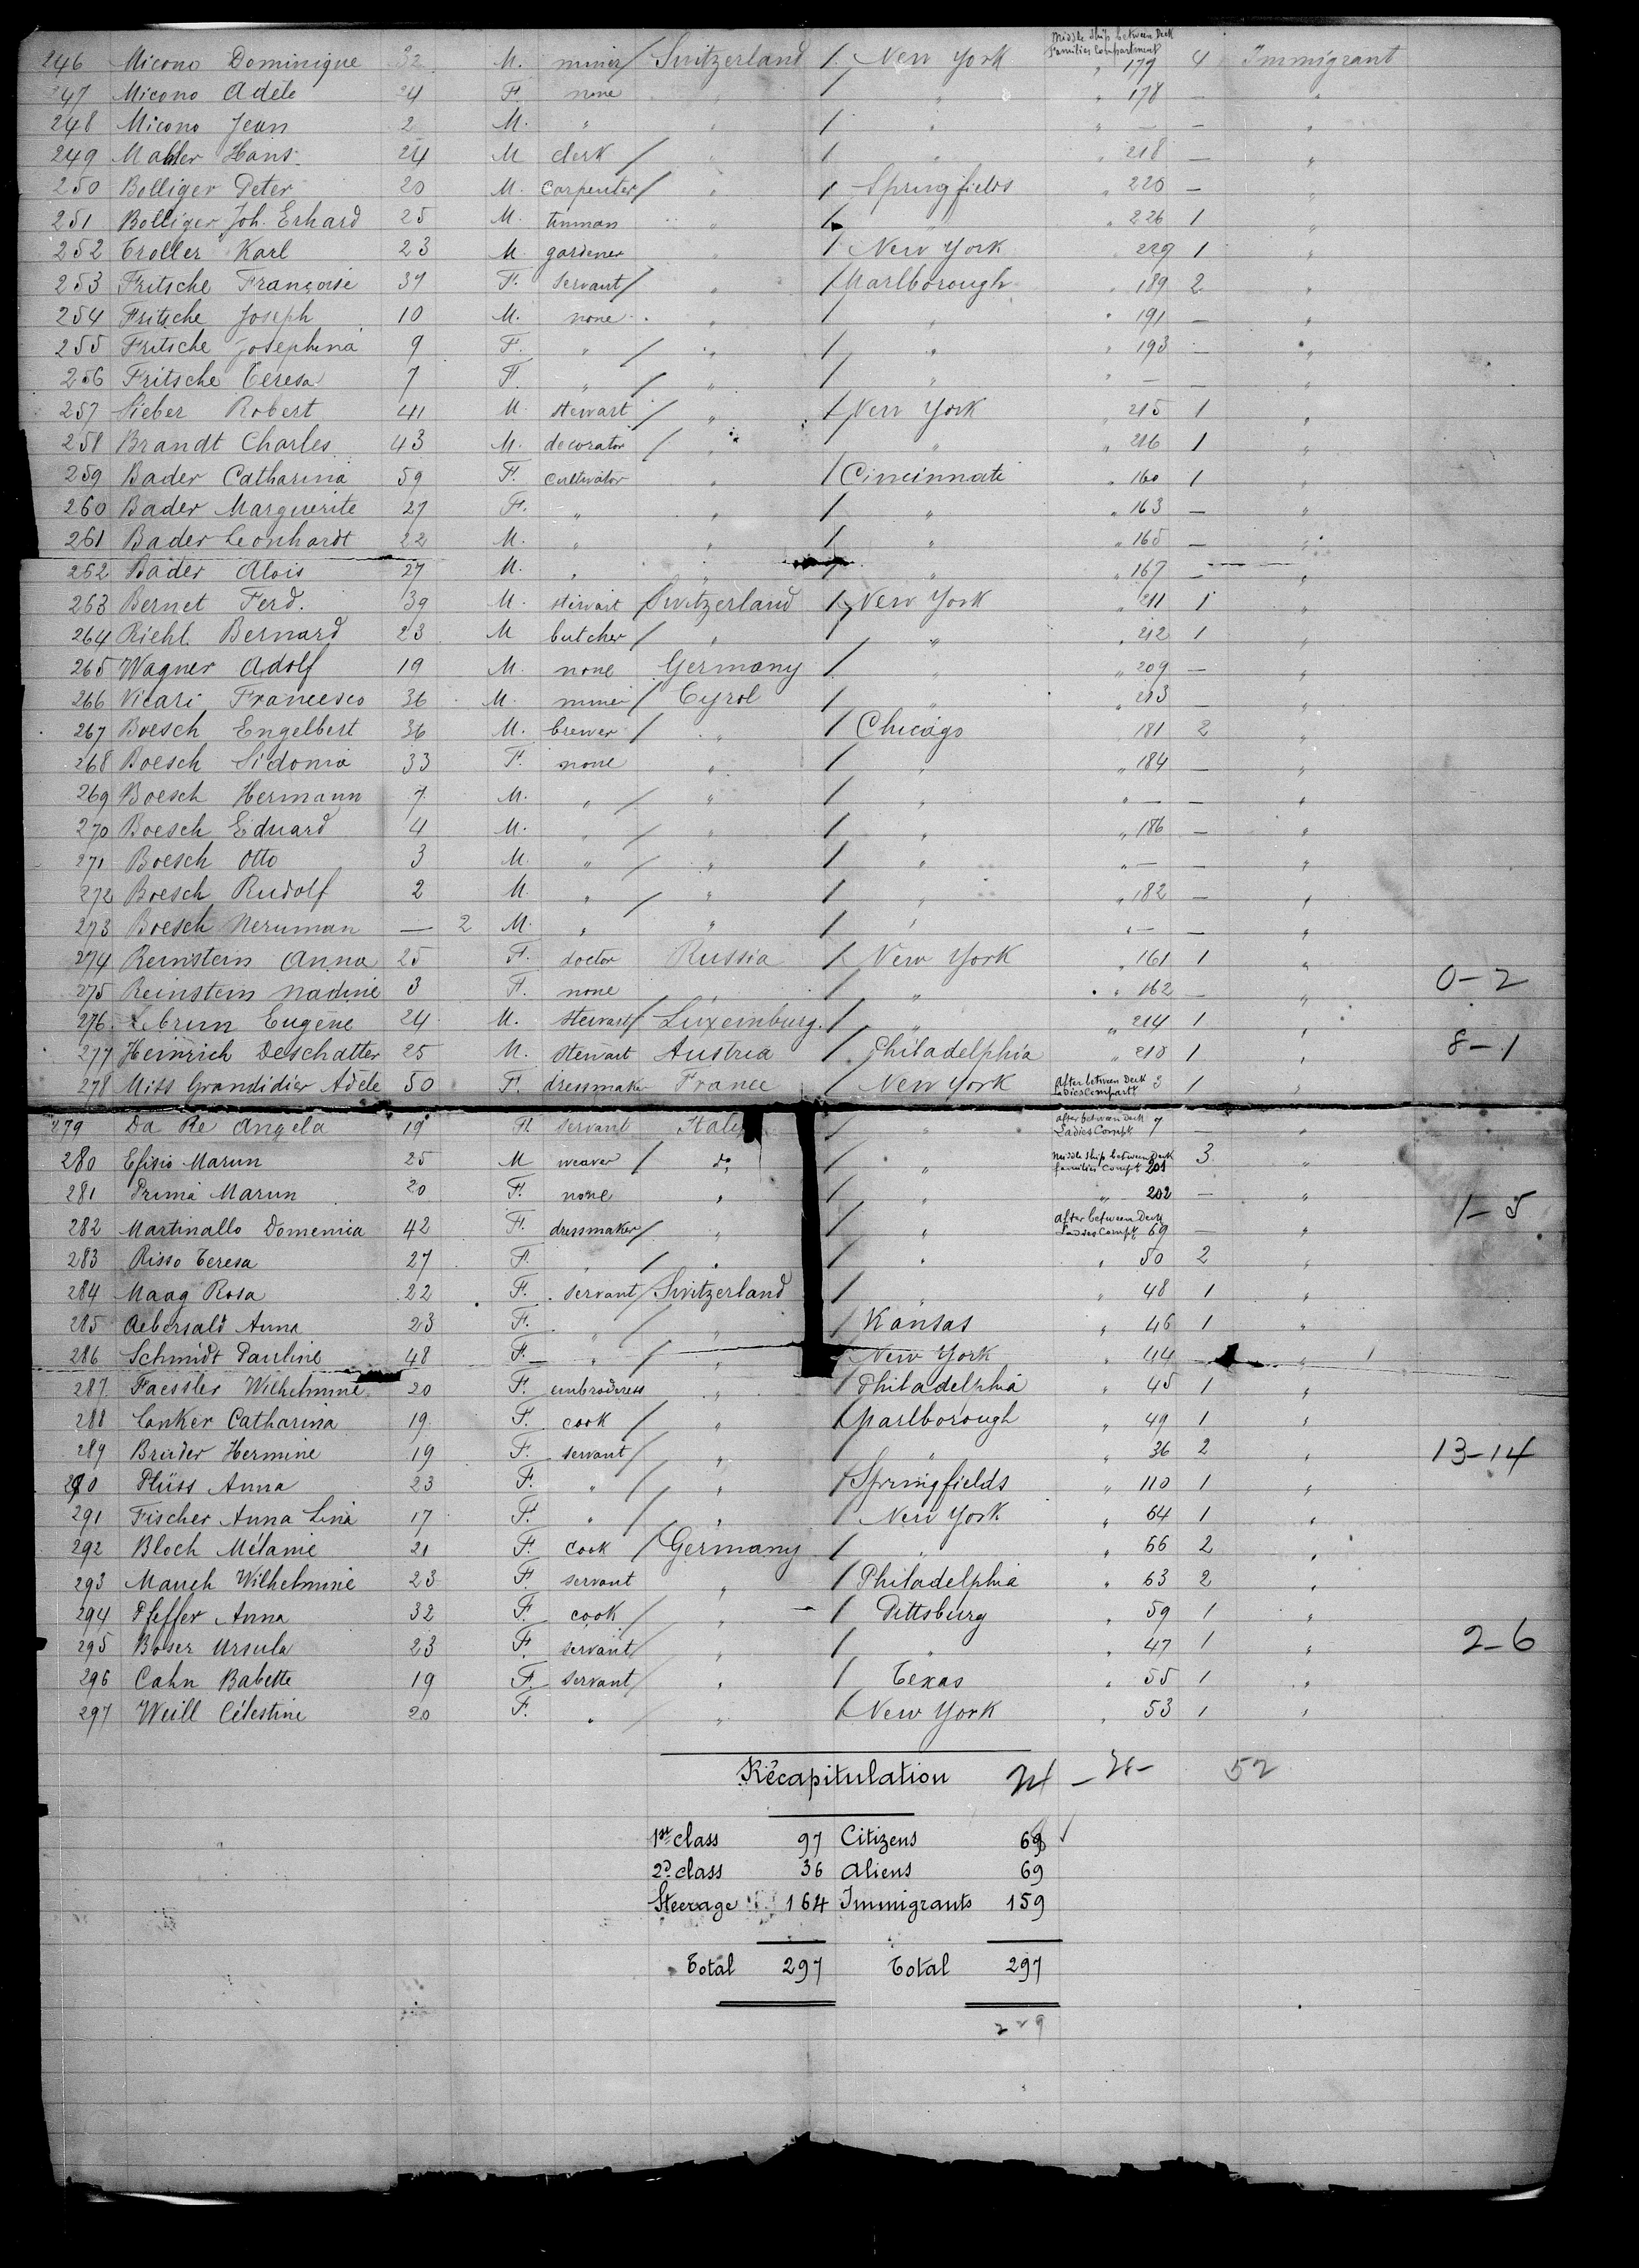 Middle Ship between Deck
Families Compartment
246 Micono Dominique 32 M. miner / Switzerland / New York " 179 4 Immigrant
247 Micono Adele 24 F. none " / " " 178 — "
248 Micono Jean 2 M. " " / " " — — "
249 Mahler Hans 24 M clerk / " / " " 218 — "
250 Bolliger Peter 20 M. carpenter / " / Springfields " 220 — "
251 Bolliger Joh. Erhard 25 M. tinman " / " " 226 1 "
252 Troller Karl 23 M. gardener " / New York 229 1 "
253 Fritsche Françoise 37 F. servant / " / Marlborough " 189 2 "
254 Fritsche Joseph 10 M. none " / " " 191 — "
255 Fritsche Josephina 9 F. " / " / " " 193 — "
256 Fritsche Teresa 7 F. " / " / " " — — "
257 Sieber Robert 41 M. stewart / " / New York " 215 1 "
258 Brandt Charles 43 M. decorator / " / " " 216 1 "
259 Bader Catharina 59 F. cultivator " / Cincinnati " 160 1 "
260 Bader Marguerite 27 F. " " / " " 163 — "
261 Bader Leonhardt 22 M. " " / " " 165 — "
262 Bader Alois 27 M. " " / " " 167 — "
263 Bernet Ferd. 39 M. stewart Switzerland / New York " 211 1 "
264 Riehl Bernard 23 M butcher / " / " " 212 1 "
265 Wagner Adolf 19 M. none Germany / " " 209 — "
266 Vicari Francesco 36 M. miner / Tyrol / " " 213 — "
267 Boesch Engelbert 36 M. brewer / " / Chicago 181 2 "
268 Boesch Sidonia 33 F. none " / " " 184 — "
269 Boesch Hermann 7 M. " / " / " " — — "
270 Boesch Eduard 4 M. " / " / " " 186 — "
271 Boesch Otto 3 M. " / " / " " — — "
272 Boesch Rudolf 2 M. " / " / " " 182 — "
273 Boesch Neruman — 2 M. " " / " " — — "
274 Reinstein Anna 25 F. doctor Russia / New York " 161 1 "
275 Reinstein Nadine 3 F. none " / " " 162 — " 0-2
276 Lebrun Eugene 24 M. stewart / Luxemburg. / " " 214 1 "
277 Heinrich Deschatter 25 M. stewart Austria / Philadelphia " 210 1 " 8-1
278 Miss Grandidier Adèle 50 F. dressmaker France / New York After between Deck Ladies Compart 3 1 "
279 Da Re Angela 19 F. servant Italy / " After between Deck Ladies Compt 7 — "
280 Efisio Marun 25 M weaver / do / " Middle Ship between Deck families Compt 201 3 "
281 Prima Marun 20 F. none " / " " 202 — " 1-5
282 Martinallo Domenica 42 F. dressmaker / " / " After between Deck Ladies Compt 69 — "
283 Risso Teresa 27 F. " / " / " " 50 2 "
284 Maag Rosa 22 F. servant / Switzerland / " " 48 1 "
285 Aebersald Anna 23 F. " / " / Kansas " 46 1 "
286 Schmidt Pauline 48 F. " / " / New York " 44 — " 1
287 Faessler Wilhelmine 20 F. embroideress " / Philadelphia " 45 1 "
288 Conker Catharina 19 F. cook / " / Marlborough " 49 1 "
289 Bruder Hermine 19 F. servant / " / " " 36 2 " 13-14
290 Plüss Anna 23 F. " / " / Springfields " 110 1 "
291 Fischer Anna Lina 17 F. " / " / New York " 64 1 "
292 Bloch Mélanie 21 F. cook / Germany / " " 66 2 "
293 Mauch Wilhelmine 23 F. servant " / Philadelphia " 63 2 "
294 Pfeffer Anna 32 F. cook / " / Pittsburg " 59 1 "
295 Boser Ursula 23 F. servant / " / " " 47 1 " 2-6
296 Cahn Babette 19 F. servant / " / Texas " 55 1 "
297 Weill Célestine 20 F. " / " / New York " 53 1 "
Récapitulation 52
1st class 97 Citizens 69 ✓
2d class 36 Aliens 69
Steerage 164 Immigrants 159
Total 297 Total 297
229